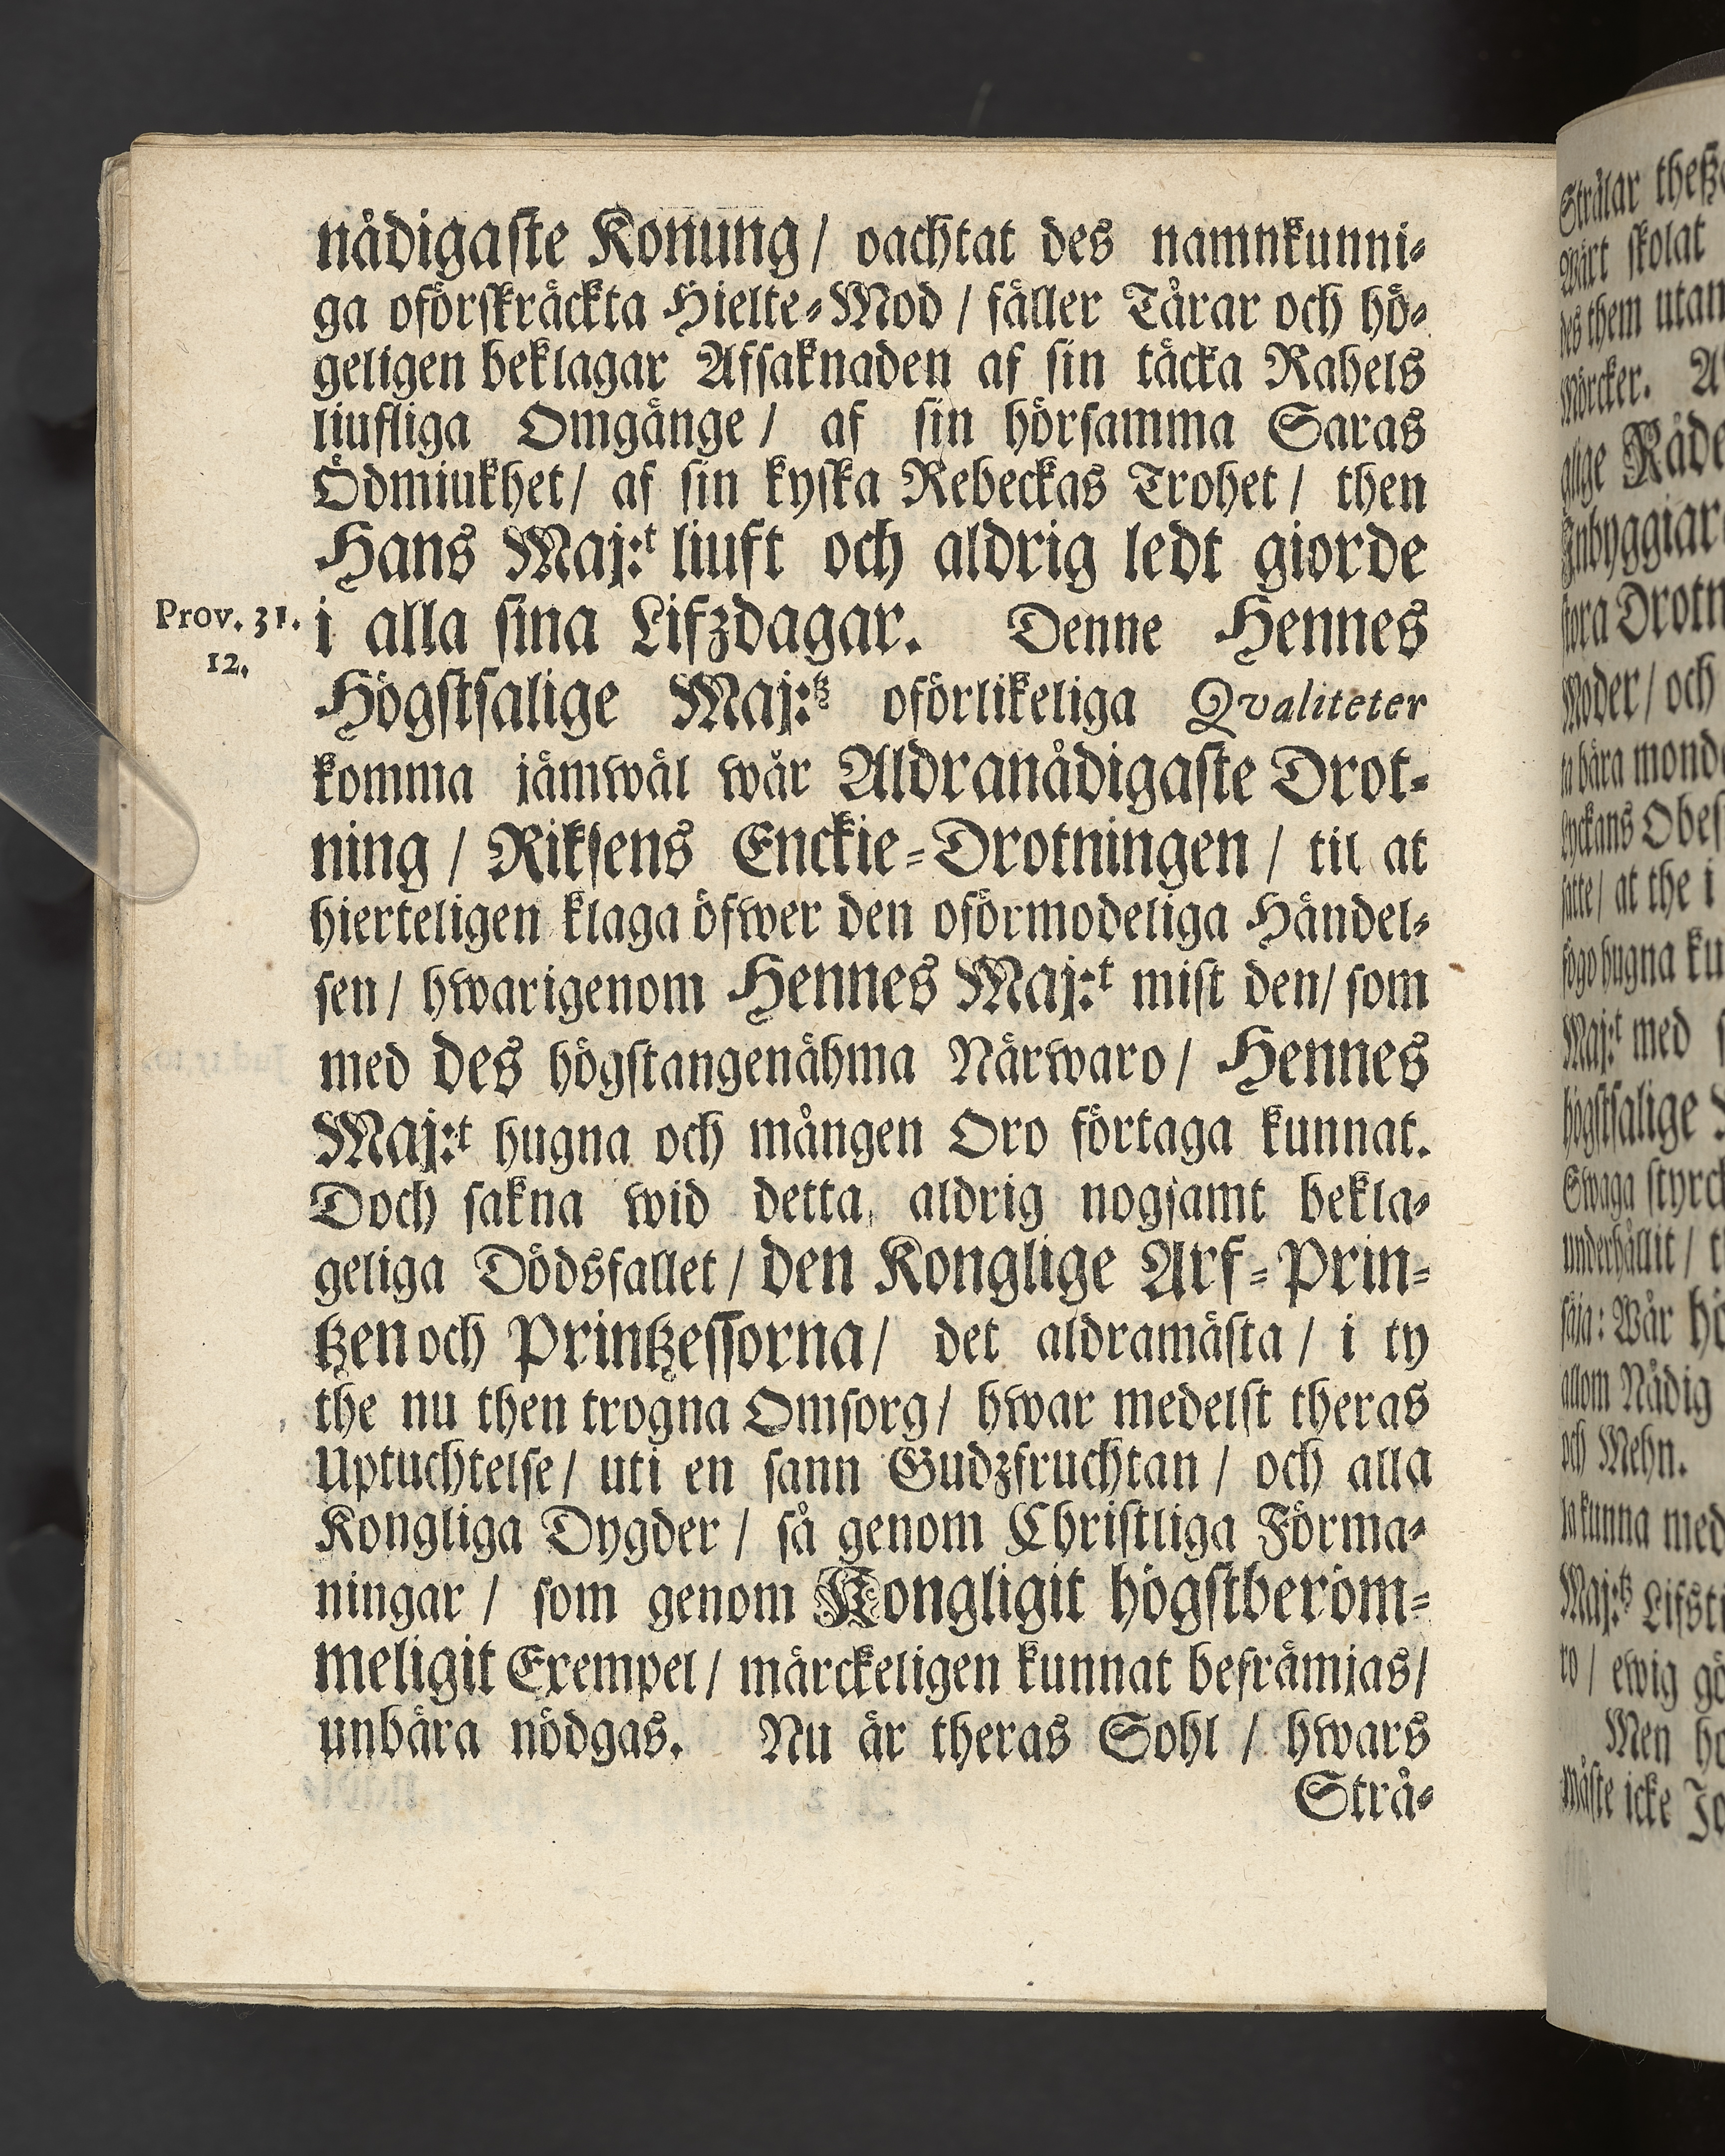 nådigaste Konung / oachtat des namnkunni-
ga oförskräckta Hielte-Mod / fäller Tårar och hö-
geligen beklagar Afsaknaden af sin täcka Rahels
liufliga Omgänge / af sin hörsamma Saras
Ödmiukhet / af sin kyska Rebeckas Trohet / then
Hans Maj:t liuft och aldrig ledt giorde
Prov. 31.
12.
i alla sina Lifzdagar. Denne Hennes
Högstsalige Maj:tz oförlikeliga Qvaliteter
komma jämwäl wår Aldranådigaste Drot-
ning / Riksens Enckie-Drotningen / til at
hierteligen klaga öfwer den oförmodeliga Händel-
sen / hwarigenom Hennes Maj:t mist den / som
med des högstangenähma Närwaro / Hennes
Maj:t hugna och mången Oro förtaga kunnat.
Doch sakna wid detta, aldrig nogsamt bekla-
geliga Dödsfallet / den Konglige Arf-Prin-
tzen och Printzessorna / det aldramästa / i ty
the nu then trogna Omsorg / hwar medelst theras
Uptuchtelse / uti en sann Gudzfruchtan / och alla
Kongliga Dygder / så genom Christliga Förma-
ningar / som genom Kongligit högstberöm-
meligit Exempel / märckeligen kunnat befrämjas /
unbära nödgas. Nu är theras Sohl / hwars
Strå-
Strålar
Wärt skolat
des them utan
Mörcker.
Råde
Inbyggiar
stora Drotn
Moder / och
bära
lyckans
satte / at the i
hugna
Maj:t med
högstsalige
Swaga
underhållit /
säja: Wår
allom Nådig
och Mehn.
kunna med
Maj:tz
ro / ewig
Men
måste icke